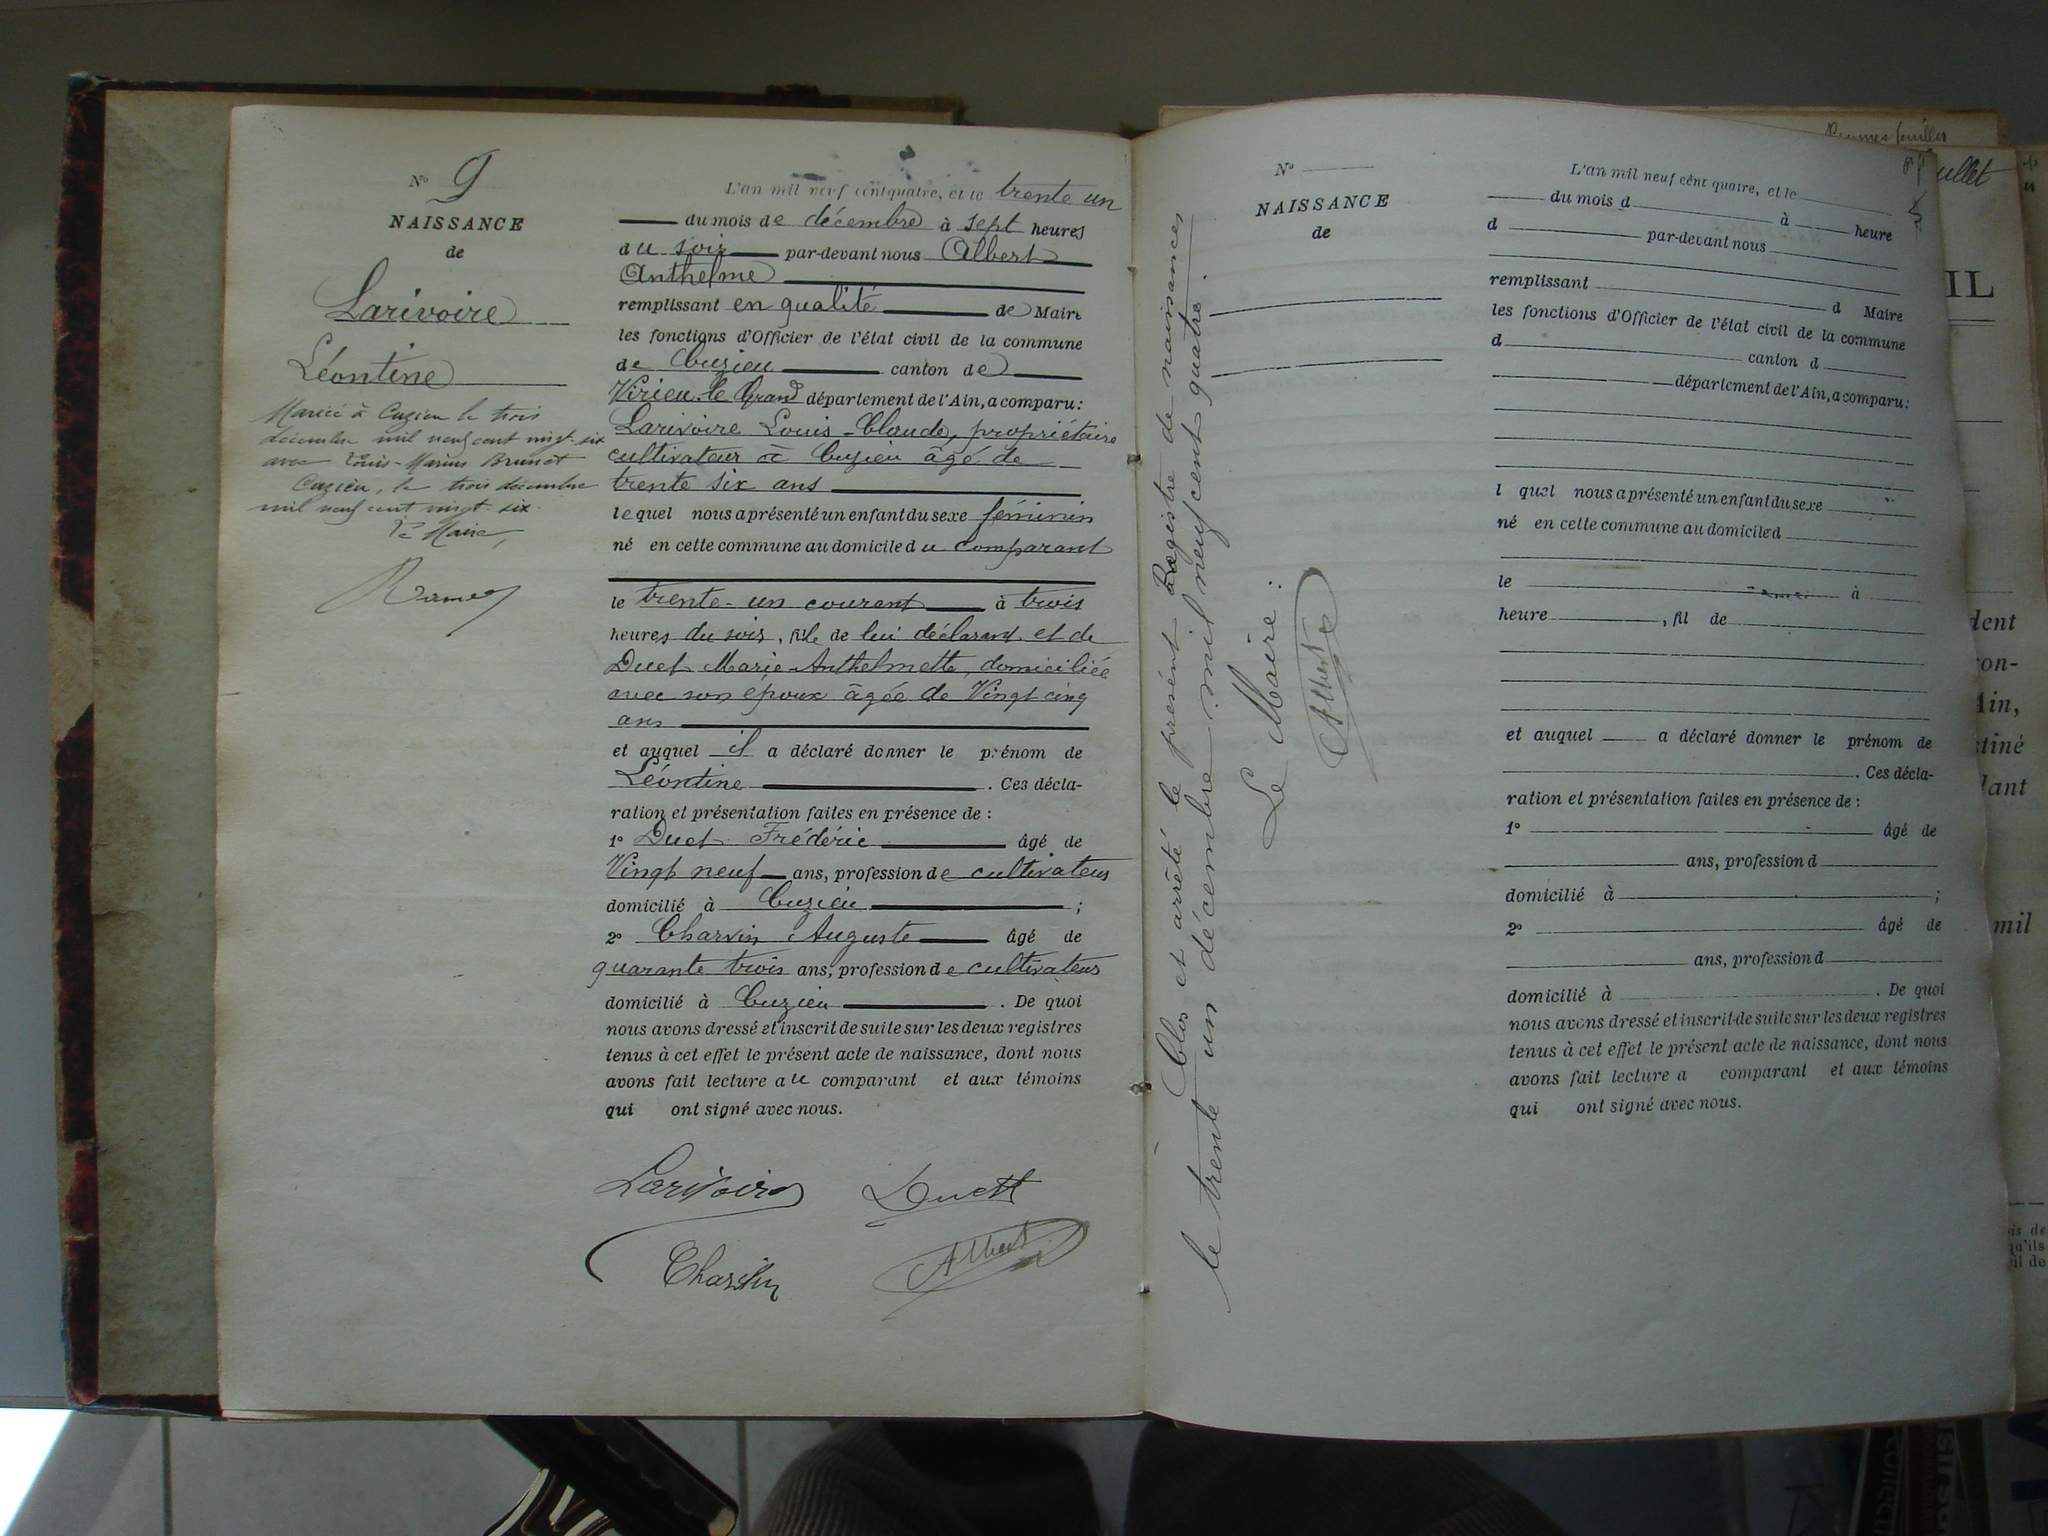 N° 9
NAISSANCE
de
Larivoire
Léontine
Mariée à Cuzieu le trois
décembre mil neuf cent vingt-six
avec Louis-Marius Brunet
Cuzieu, le trois décembre
mil neuf cent vingt-six
Le Maire,
L'an mil neuf cent quatre, et le trente un
du mois de décembre à sept heures
du soir par-devant nous Albert
Anthelme
remplissant en qualité de Maire
les fonctions d'Officier de l'état civil de la commune
de Cuzieu canton de
Virieu-le-Grand département de l'Ain, a comparu:
Larivoire Louis-Claude, propriétaire
cultivateur à Cuzieu âgé de
trente six ans
lequel nous a présenté un enfant du sexe féminin
né en cette commune au domicile du comparant
le trente-un courant à trois
heures du soir, fille de lui déclarant et de
Duet Marie-Anthelmette, domiciliée
avec son époux âgée de Vingt cinq
ans
et auquel il a déclaré donner le prénom de
Léontine. Ces décla-
ration et présentation faites en présence de :
1° Duet Frédéric âgé de
Vingt neuf ans, profession de cultivateur
domicilié à Cuzieu ;
2° Charvin Auguste âgé de
quarante trois ans, profession de cultivateur
domicilié à Cuzieu. De quoi
nous avons dressé et inscrit de suite sur les deux registres
tenus à cet effet le présent acte de naissance, dont nous
avons fait lecture au comparant et aux témoins
qui ont signé avec nous.
Larivoire Duet
Charvin Albert
Clos et arrêté le présent Registre de naissances
le trente un décembre mil neuf cent quatre.
Le Maire :
Albert
N°
NAISSANCE
de
L'an mil neuf cent quatre, et le
du mois d à heure
d par-devant nous
remplissant d Maire
les fonctions d'Officier de l'état civil de la commune
d canton d
département de l'Ain, a comparu:
l quel nous a présenté un enfant du sexe
né en cette commune au domicile d
le à
heure , fil de
et auquel a déclaré donner le prénom de
. Ces décla-
ration et présentation faites en présence de :
1° âgé de
ans, profession d
domicilié à ;
2° âgé de
ans, profession d
domicilié à . De quoi
nous avons dressé et inscrit de suite sur les deux registres
tenus à cet effet le présent acte de naissance, dont nous
avons fait lecture a comparant et aux témoins
qui ont signé avec nous.
feuilles
uillet
IL
dent
ron-
Ain,
stiné
dant
mil